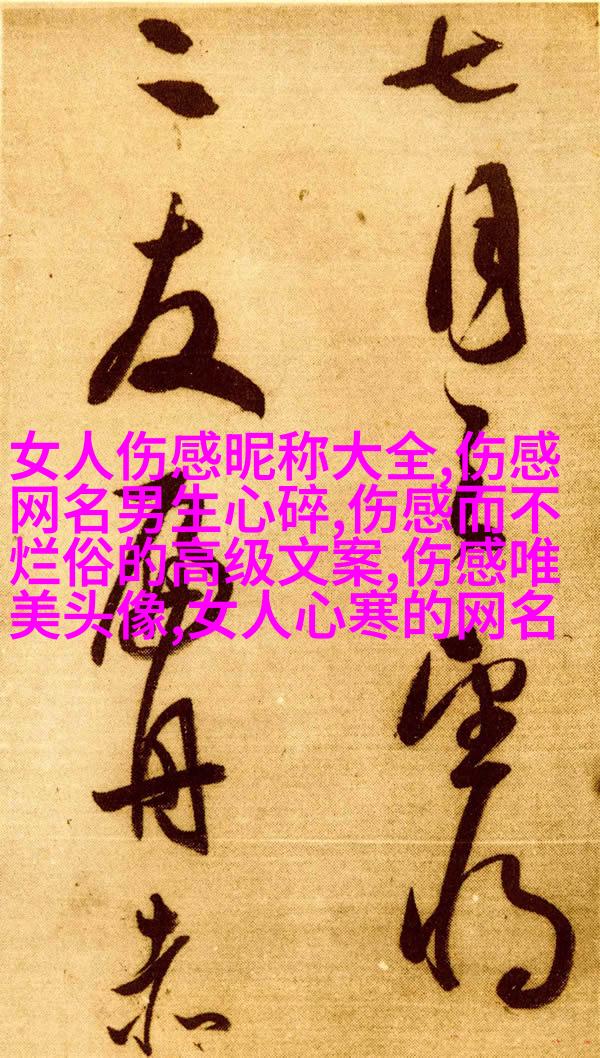 七月望將
二友扁舟赤
女人伤感昵称大全,伤感
网名男生心碎,伤感而不
烂俗的高级文案,伤感唯
美头像,女人心寒的网名